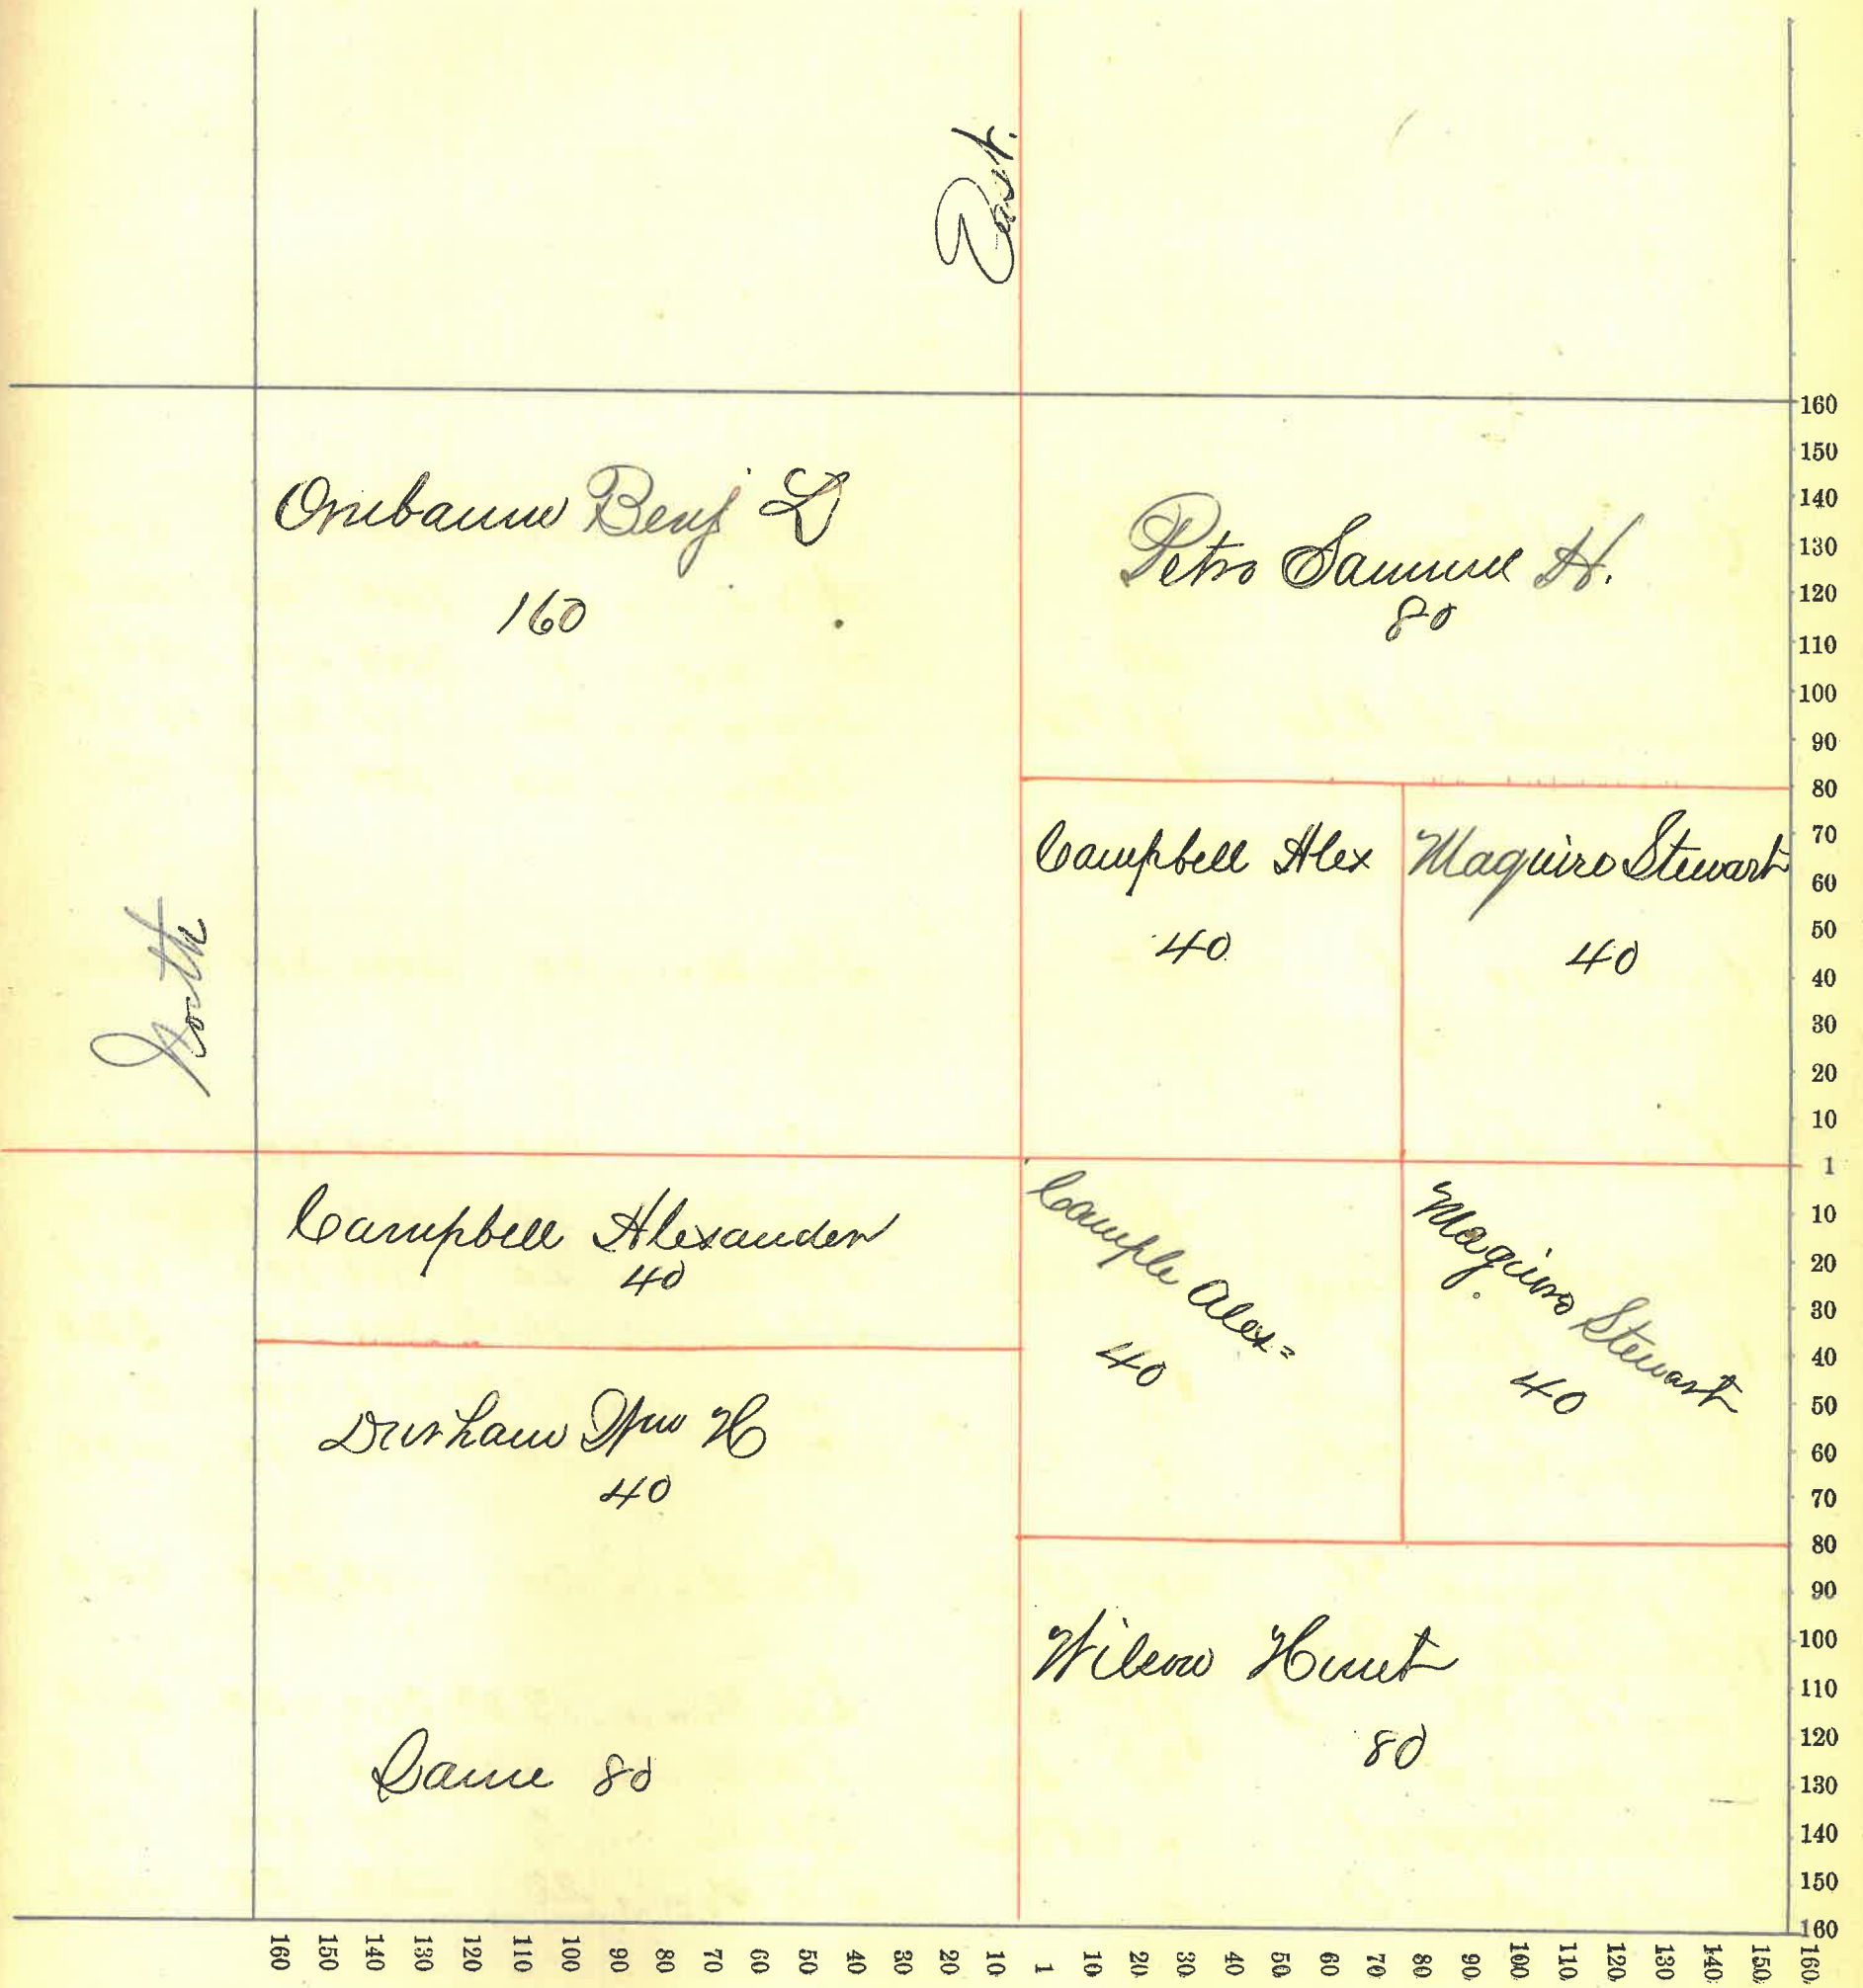 East.
North
Benj L
160
Petro Samuel H.
80
Campbell Alex
40
Maguire Stewart
40
Campbell Alexander
40
Durham Wm H
40
Same 80
Cample Alex=
40
Maguire Stewart
40
Wilson Hunt
80
160
150
140
130
120
110
100
90
80
70
60
50
40
30
20
10
1
10
20
30
40
50
60
70
80
90
100
110
120
130
140
150
160
160 150 140 130 120 110 100 90 80 70 60 50 40 30 20 10 1 10 20 30 40 50 60 70 80 90 100 110 120 130 140 150 160